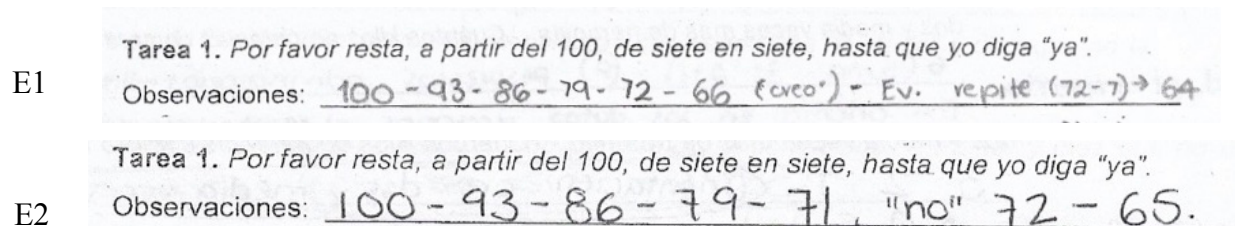 Tarea 1. Por favor resta, a partir del 100, de siete en siete, hasta que yo diga “ya”.
E1
Observaciones: 100 - 93 - 86 - 79 - 72 - 66 (creo) - Ev. repite (72-7) → 64
Tarea 1. Por favor resta, a partir del 100, de siete en siete, hasta que yo diga “ya”.
E2
Observaciones: 100 - 93 - 86 - 79 - 71, "no" 72 - 65.